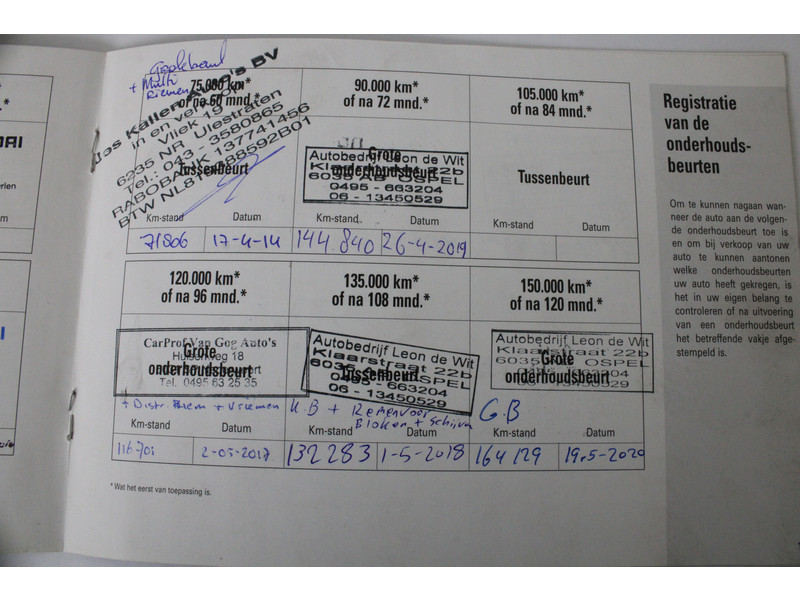 + Multi
Riemen
75.000 km*
of na 60 mnd.*
Jos Kallen Auto's BV
in en verkoop
Vliek 19
6235 NR Ulestraten
Tel.: 043 - 3580865
RABOBANK 137741456
Tussenbeurt
Km-stand Datum
71806 17-4-14
90.000 km*
of na 72 mnd.*
Grote
onderhoudsbeurt
Autobedrijf Leon de Wit
Klaarstraat 22b
6035 AB OSPEL
0495 - 663204
06 - 13450529
Km-stand Datum
144.840 26-4-2019
105.000 km*
of na 84 mnd.*
Tussenbeurt
Km-stand Datum
120.000 km*
of na 96 mnd.*
CarProf Van Gog Auto's
Grote
onderhoudsbeurt
Tel. 0495 63 25 35
Km-stand Datum
116701 2-05-2017
135.000 km*
of na 108 mnd.*
Autobedrijf Leon de Wit
Klaarstraat 22b
Tussenbeurt
OSPEL
0495 - 663204
06 - 13450529
K.B + Remmenvoor
Blokken + Schijven
Km-stand Datum
132283 1-5-2018
150.000 km*
of na 120 mnd.*
Autobedrijf Leon de Wit
Klaarstraat 22b
Grote
onderhoudsbeurt
G.B
Km-stand Datum
164129 19.5-2020
*Wat het eerst van toepassing is.
Registratie
van de
onderhouds-
beurten
Om te kunnen nagaan wan-
neer de auto aan de volgen-
de onderhoudsbeurt toe is
en om bij verkoop van uw
auto te kunnen aantonen
welke onderhoudsbeurten
uw auto heeft gekregen, is
het in uw eigen belang te
controleren of na uitvoering
van een onderhoudsbeurt
het betreffende vakje afge-
stempeld is.